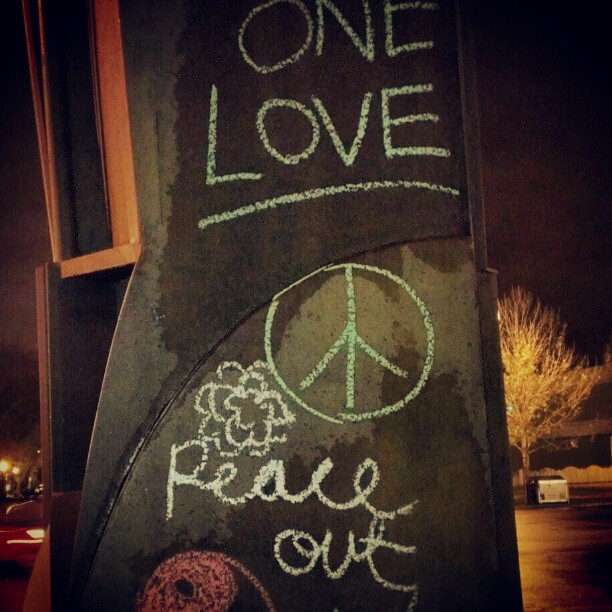 ONE
LOVE
Peace
out